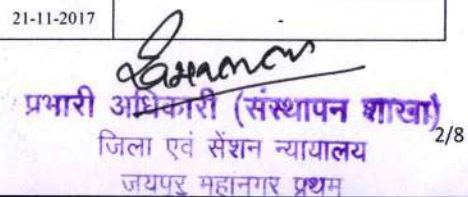 21-11-2017 -
प्रभारी अधिकारी (संस्थापन शाखा)
जिला एवं सेंशन न्यायालय
2/8
जयपुर महानगर प्रथम